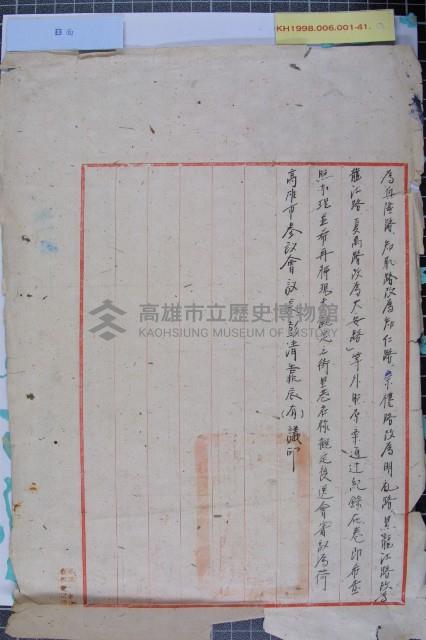 B面
KH1998.006.001-41.
為興隆路、知恥路改為知仁路、崇禮路改為明礼路、黑龍江路改為
龍江路、夏禹路改為大安路」等外照原案通過紀錄在卷即希查
照辦理並希再將現未擬定之街里巷名稱擬定後送會審議為荷
高雄市參議會議長彭清靠辰(有)議印
高雄市立歷史博物館
KAOHSIUNG MUSEUM OF HISTORY